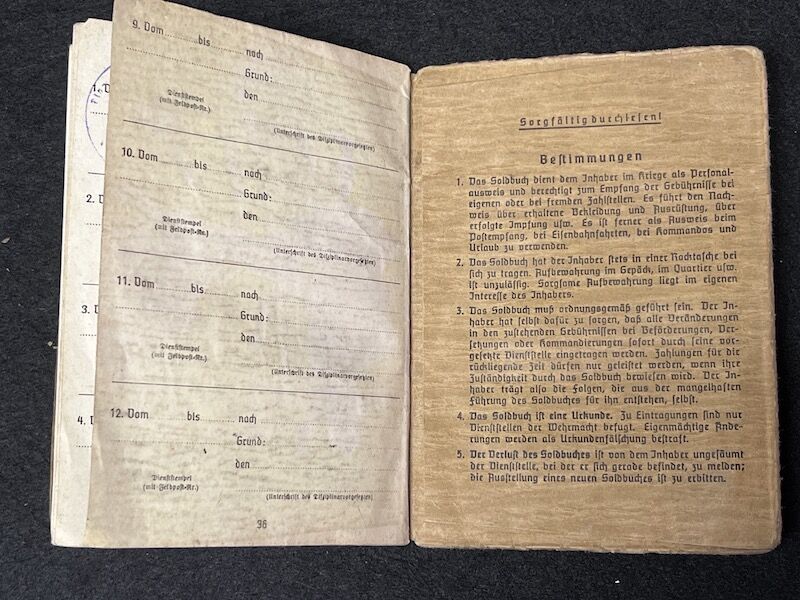 9. Vom bis nach
Grund:
den
Dienststempel
(mit Feldpost-Nr.)
(Unterschrift des Disziplinarvorgesetzten)
10. Vom bis nach
Grund:
den
Dienststempel
(mit Feldpost-Nr.)
(Unterschrift des Disziplinarvorgesetzten)
11. Vom bis nach
Grund:
den
Dienststempel
(mit Feldpost-Nr.)
(Unterschrift des Disziplinarvorgesetzten)
12. Vom bis nach
Grund:
den
Dienststempel
(mit Feldpost-Nr.)
(Unterschrift des Disziplinarvorgesetzten)
36
1. V
2. V
3. V
4. V
Sorgfältig durchlesen!
Bestimmungen
1. Das Soldbuch dient dem Inhaber im Kriege als Personal-
ausweis und berechtigt zum Empfang der Gebührnisse bei
eigenen oder bei fremden Zahlstellen. Es führt den Nach-
weis über erhaltene Bekleidung und Ausrüstung, über
erfolgte Impfung usw. Es ist ferner als Ausweis beim
Postempfang, bei Eisenbahnfahrten, bei Kommandos und
Urlaub zu verwenden.
2. Das Soldbuch hat der Inhaber stets in einer Rocktasche bei
sich zu tragen. Aufbewahrung im Gepäck, im Quartier usw.
ist unzulässig. Sorgsame Aufbewahrung liegt im eigenen
Interesse des Inhabers.
3. Das Soldbuch muß ordnungsgemäß geführt sein. Der In-
haber hat selbst dafür zu sorgen, daß alle Veränderungen
in den zustehenden Gebührnissen bei Beförderungen, Ver-
setzungen oder Kommandierungen sofort durch seine vor-
gesetzte Dienststelle eingetragen werden. Zahlungen für die
rückliegende Zeit dürfen nur geleistet werden, wenn ihre
Zuständigkeit durch das Soldbuch bewiesen wird. Der In-
haber trägt also die Folgen, die aus der mangelhaften
Führung des Soldbuches für ihn entstehen, selbst.
4. Das Soldbuch ist eine Urkunde. Zu Eintragungen sind nur
Dienststellen der Wehrmacht befugt. Eigenmächtige Ände-
rungen werden als Urkundenfälschung bestraft.
5. Der Verlust des Soldbuches ist von dem Inhaber ungesäumt
der Dienststelle, bei der er sich gerade befindet, zu melden;
die Ausstellung eines neuen Soldbuches ist zu erbitten.